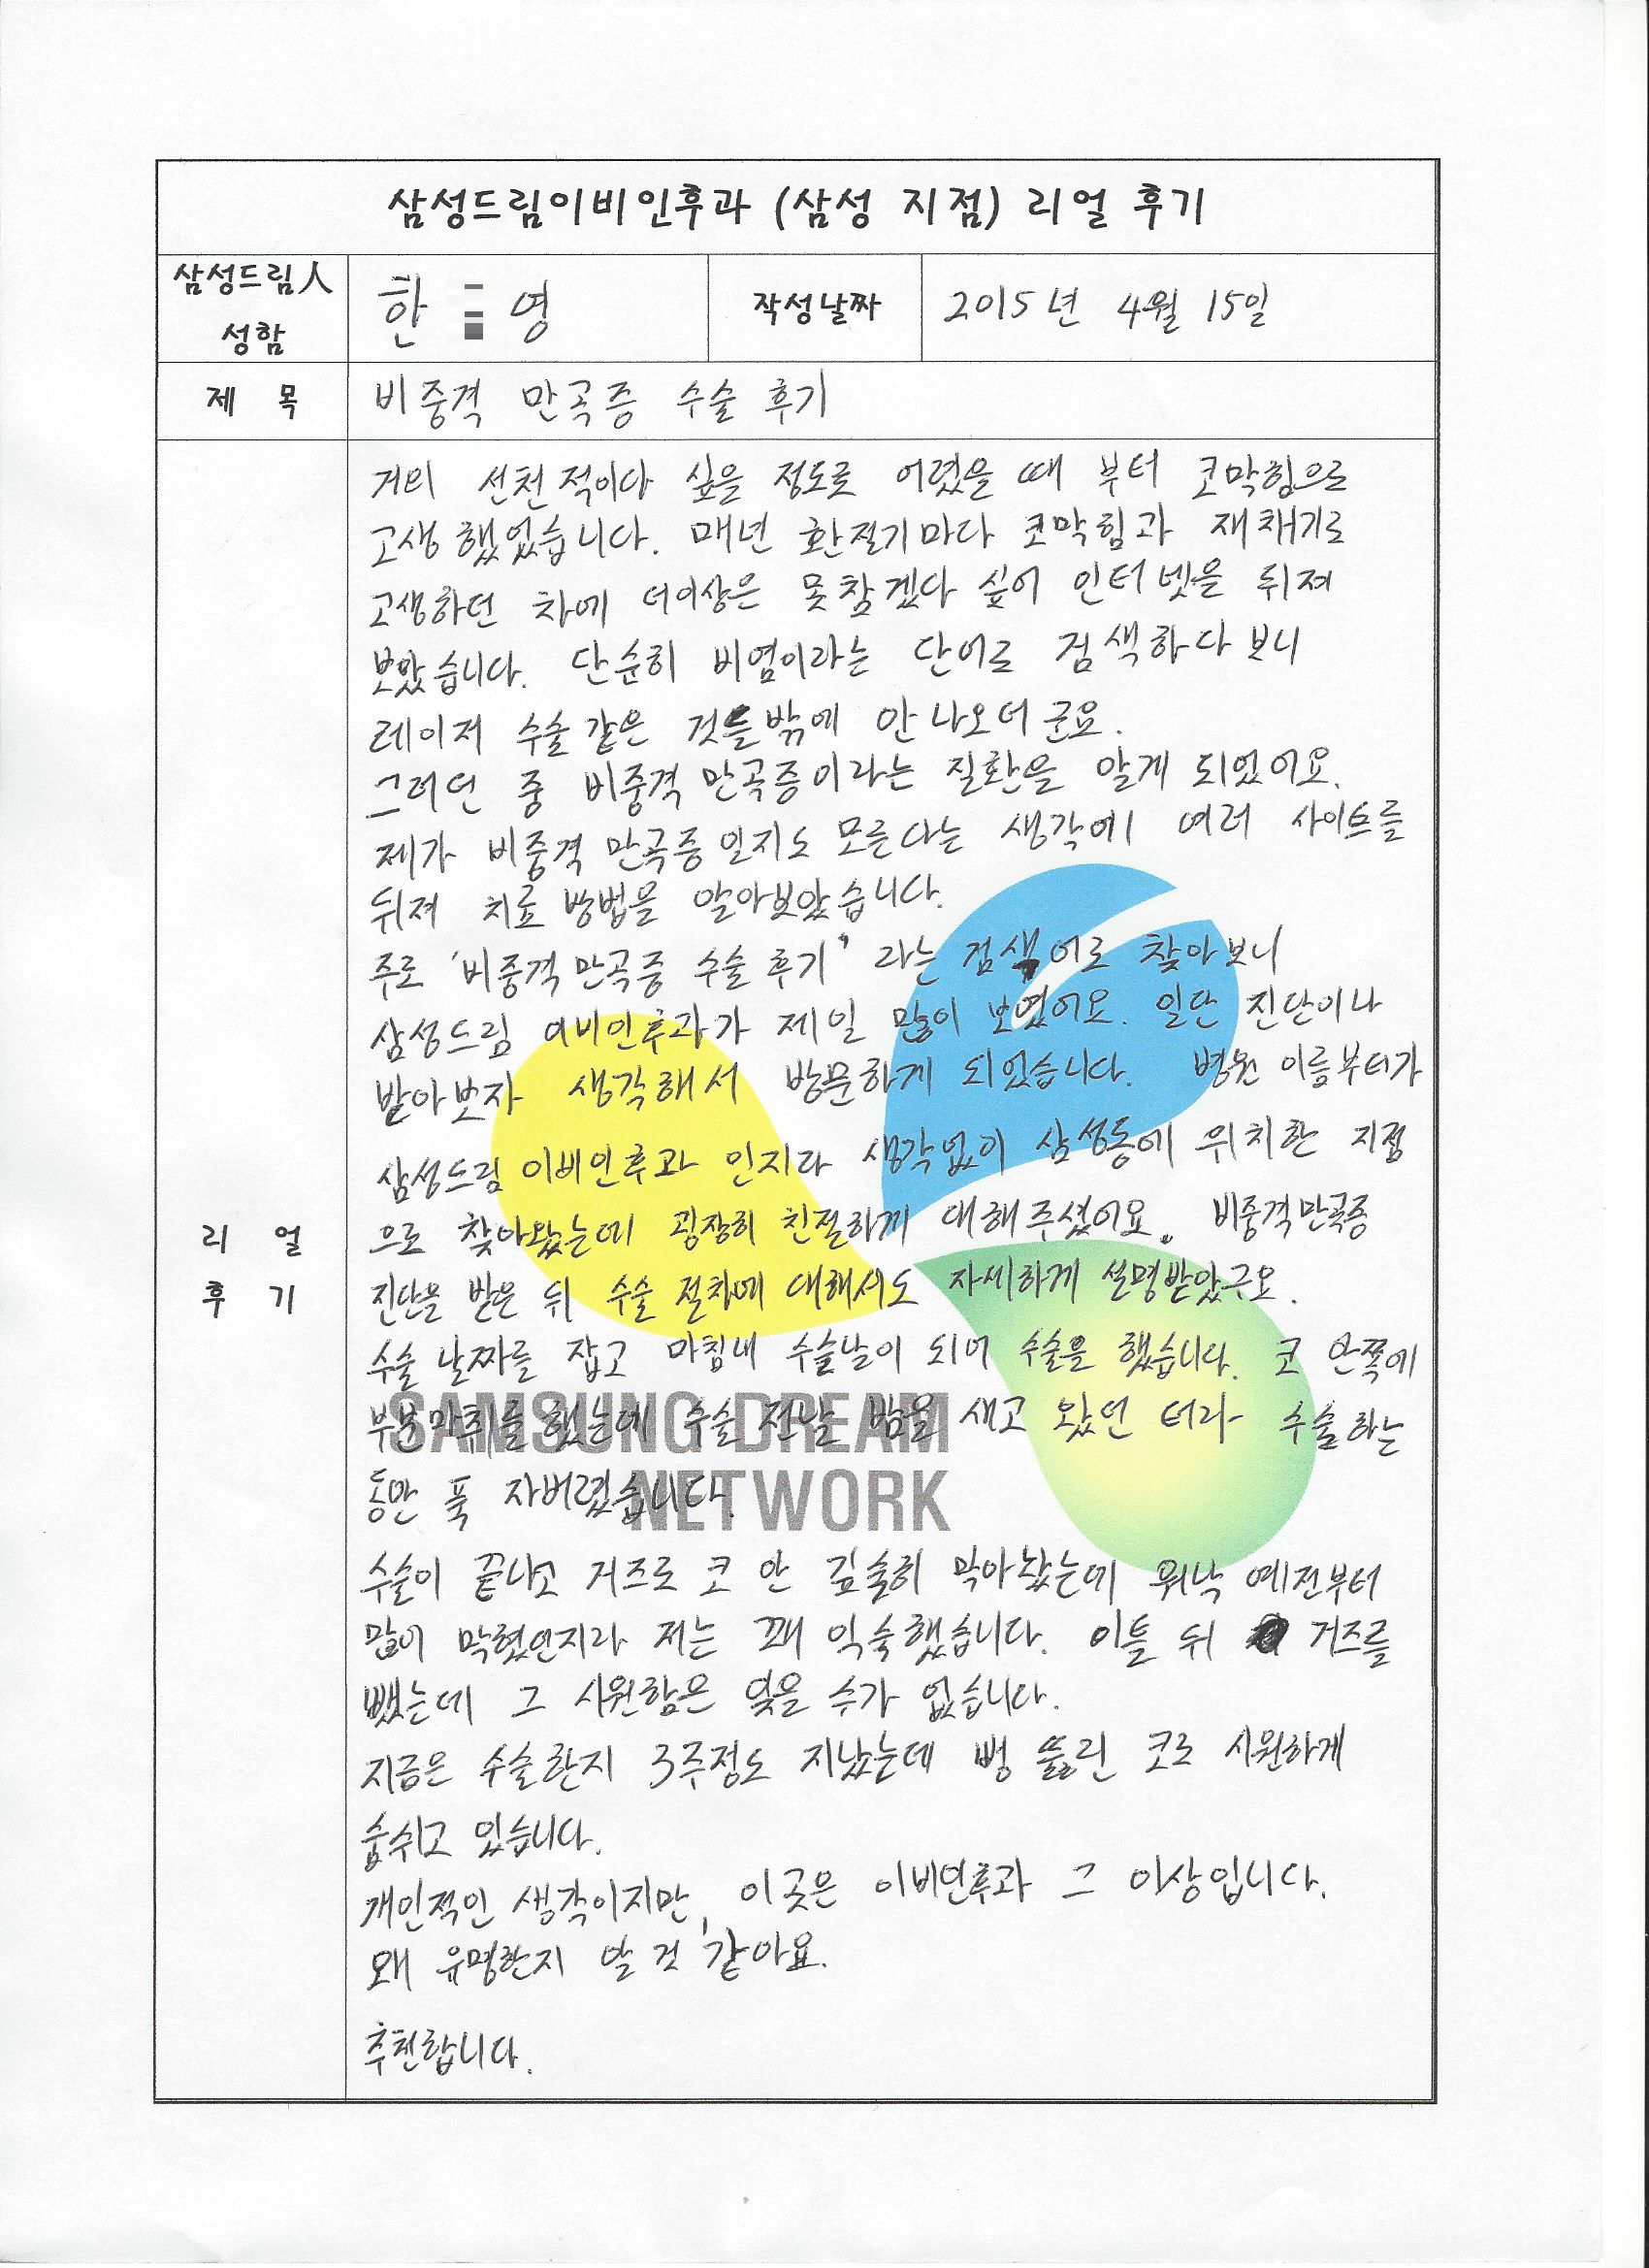 삼성드림이비인후과 (삼성 지점) 리얼 후기
삼성드림人
성함
한 영
작성날짜
2015년 4월 15일
제 목
비중격 만곡증 수술 후기
리 얼
후 기
거의 선천적이다 싶을 정도로 어렸을 때 부터 코막힘으로
고생했었습니다. 매년 환절기마다 코막힘과 재채기로
고생하던 차에 더이상은 못참겠다 싶어 인터넷을 뒤져
보았습니다. 단순히 비염이라는 단어로 검색하다보니
레이저 수술같은 것들밖에 안나오더군요.
그러던 중 비중격만곡증이라는 질환을 알게 되었어요.
제가 비중격만곡증인지도 모른다는 생각에 여러 사이트를
뒤져 치료 방법을 알아보았습니다.
주로 '비중격만곡증 수술 후기' 라는 검색어로 찾아보니
삼성드림 이비인후과가 제일 많이 보였어요. 일단 진단이나
받아보자 생각해서 방문하게 되었습니다. 병원 이름부터가
삼성드림이비인후과 인지라 생각없이 삼성동에 위치한 지점
으로 찾아왔는데 굉장히 친절하게 대해주셨어요. 비중격만곡증
진단을 받은 뒤 수술 절차에 대해서도 자세하게 설명받았구요.
수술 날짜를 잡고 마침내 수술날이 되어 수술을 했습니다. 코 안쪽에
부분마취를 했는데 수술 전날 밤을 새고 왔던 터라 수술하는
동안 푹 자버렸습니다.
수술이 끝나고 거즈로 코 안 깊숙히 막아놨는데 워낙 예전부터
많이 막혔던지라 저는 꽤 익숙했습니다. 이틀 뒤 거즈를
뺐는데 그 시원함은 잊을 수가 없습니다.
지금은 수술한지 3주정도 지났는데 뻥 뚫린 코로 시원하게
숨쉬고 있습니다.
개인적인 생각이지만, 이곳은 이비인후과 그 이상입니다.
왜 유명한지 알 것 같아요.
추천합니다.
SAMSUNG DREAM
NETWORK